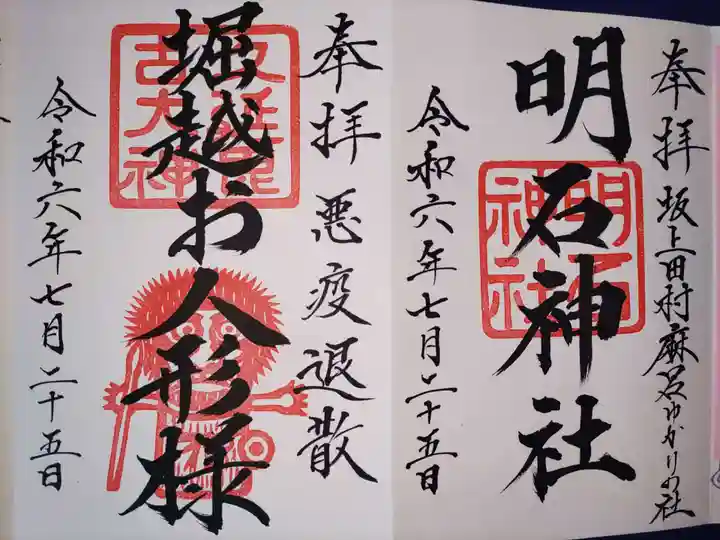 奉拝 坂上田村麻呂ゆかりの社
明石神社
明石神社
令和六年七月二十五日
奉拝 悪疫退散
堀越お人形様
令和六年七月二十五日